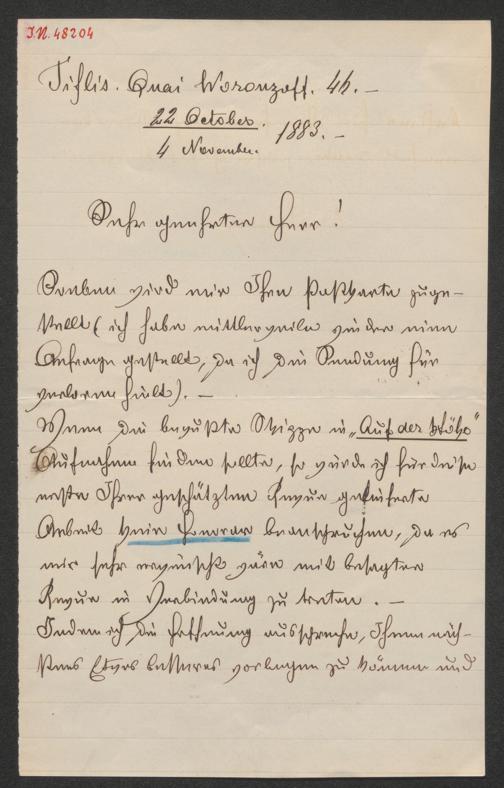 I.N. 48204
Tiflis. Quai Woronzoff. 46. –
22 October.
4 November. 1883. –
Sehr geehrter Herr!
Soeben wird mir Ihre Postkarte zuge-
stellt (ich habe mittlerweile wieder eine
Anfrage gestellt, da ich die Sendung für
verloren hielt). –
Wenn die bewußte Skizze in „Auf der Höhe"
Aufnahme finden sollte, so würde ich für diese
erste Ihrer geschätzten Revue gelieferte
Arbeit kein Honorar beanspruchen, da es
mir sehr erwünscht wäre mit besagter
Revue in Verbindung zu treten. –
Indem ich die Hoffnung ausspreche, Ihnen näch-
stens Etwas besseres vorlegen zu können und